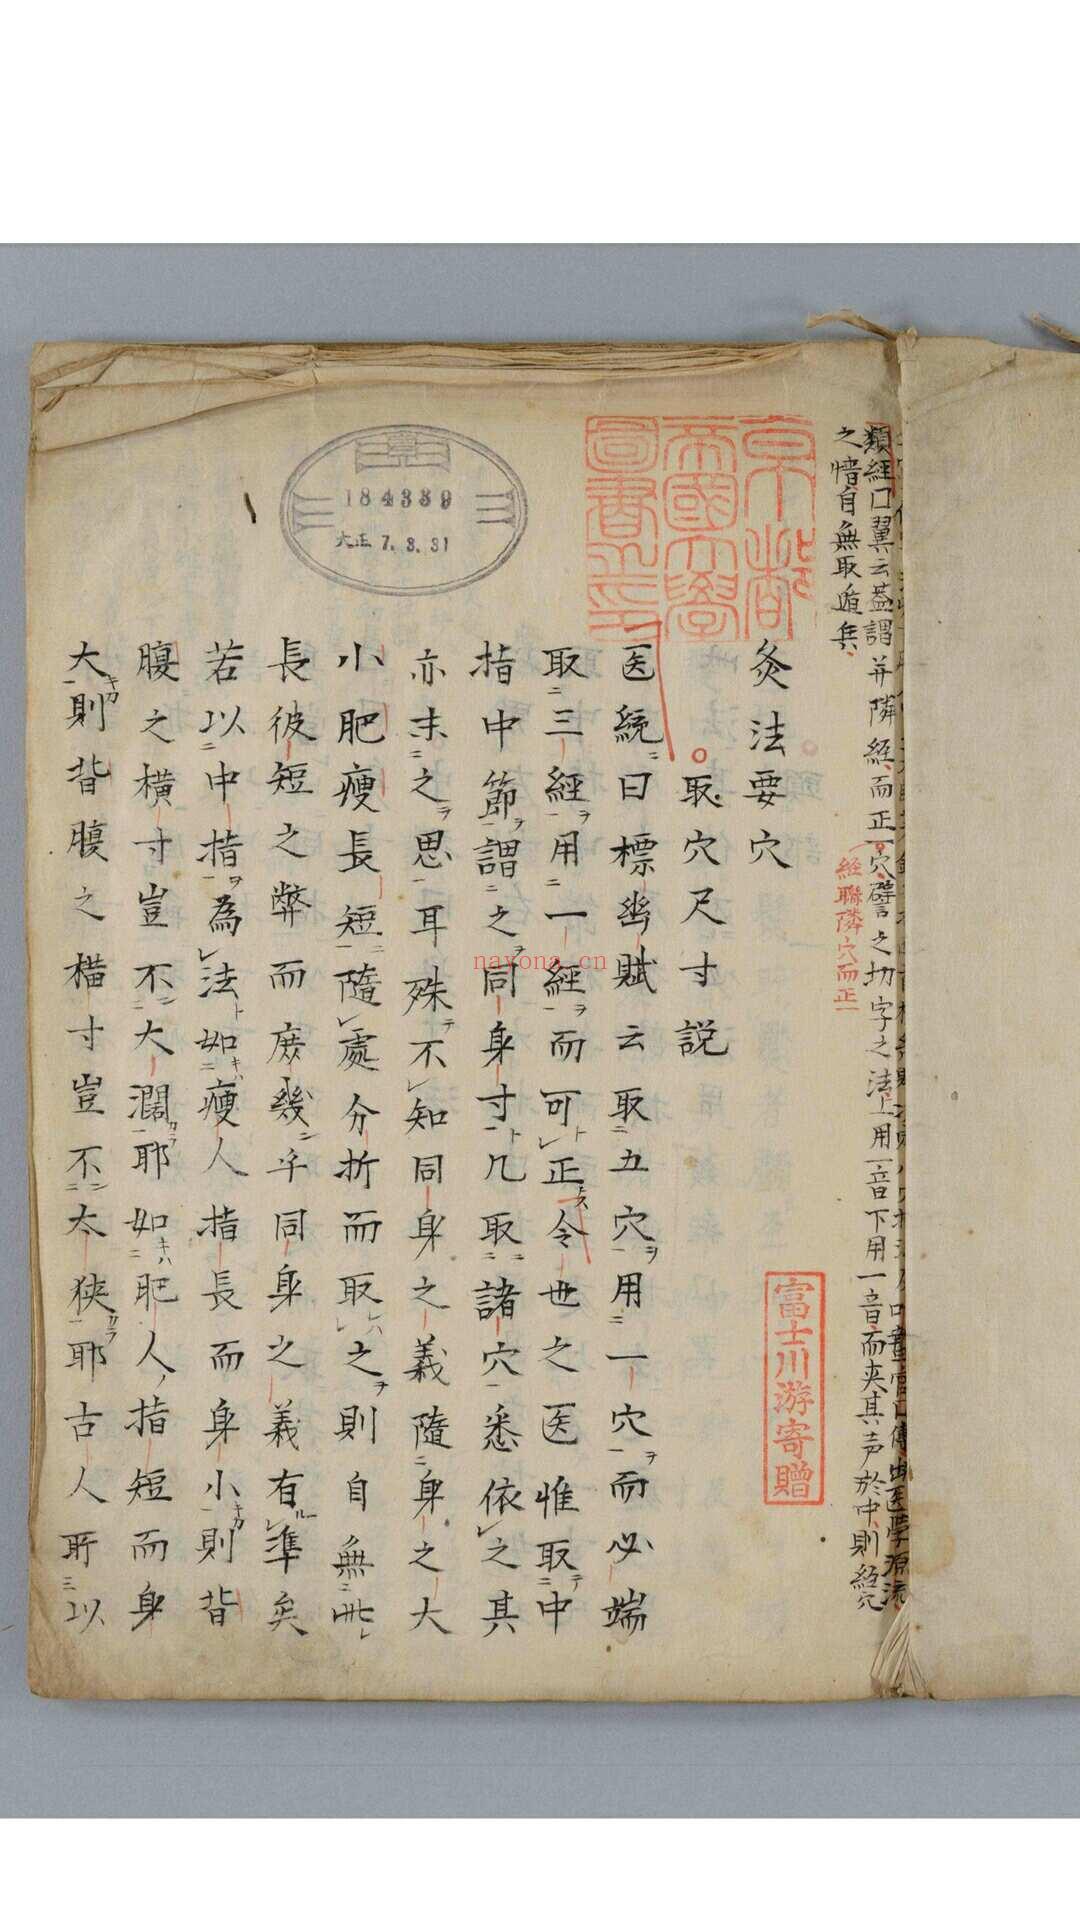 類經口翼云蓋謂并隣經而正一穴譬之切字之法上用一音下用一音而夾其声於中則經穴
之情自無取遁矣
經聯隣穴而正一
京都
帝國大學
圖書之印
184389
大正 7.3.31
富士川游寄贈
灸法要穴
取穴尺寸説
医統曰標幽賦云取五穴用一穴而必端
取三經用一經而可正今世之医惟取中
指中節謂之同身寸凡取諸穴悉依之其
亦未之思耳殊不知同身之義隨身之大
小肥瘦長短隨處分折而取之則自無此
長彼短之弊而庶幾乎同身之義有準矣
若以中指為法如瘦人指長而身小則背
腹之横寸豈不大濶耶如肥人指短而身
大則背腹之横寸豈不太狹耶古人所以
nayona.cn